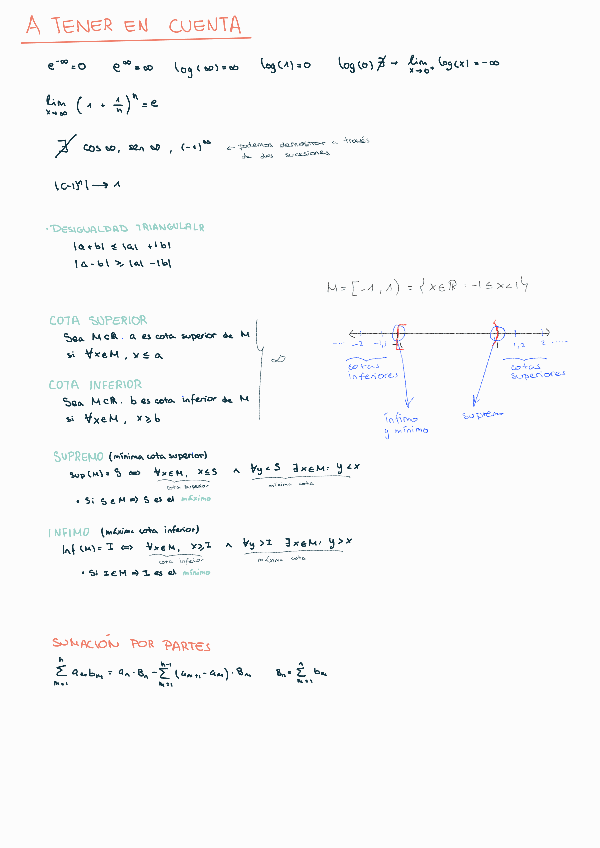 A TENER EN CUENTA
e^-∞ = 0 e^∞ = ∞ log(∞) = ∞ log(1) = 0 log(0) ∄ → lim x→0⁺ log(x) = -∞
lim x→∞ (1 + 1/n)^n = e
∄ cos ∞, sen ∞, (-1)^∞ ← podemos demostrar a través
de dos sucesiones
|(-1)^n| → 1
· DESIGUALDAD TRIANGULALR
|a+b| ≤ |a| + |b|
|a-b| ≥ |a| - |b|
M = [-1, 1) = {x∈ℝ : -1 ≤ x < 1}
COTA SUPERIOR
Sea M⊂ℝ. a es cota superior de M
si ∀x∈M, x ≤ a
COTA INFERIOR
Sea M⊂ℝ. b es cota inferior de M
si ∀x∈M, x ≥ b
... -2 -1,1 -1 1 1,2 2 ...
cotas inferiores
cotas superiores
ínfimo
y mínimo
supremo
SUPREMO (mínima cota superior)
sup(M) = S ⇔ ∀x∈M, x≤S ∧ ∀y<S ∃x∈M: y<x
cota superior mínima cota
• Si S∈M ⇒ S es el máximo
INFIMO (máxima cota inferior)
Inf(M) = I ⇔ ∀x∈M, x≥I ∧ ∀y>I ∃x∈M: y>x
cota inferior máxima cota
• Si I∈M ⇒ I es el mínimo
SUMACIÓN POR PARTES
∑_{m=1}^{n} a_m b_m = a_n · B_n - ∑_{m=1}^{n-1} (a_{m+1} - a_m) · B_m B_n = ∑_{m=1}^{n} b_m